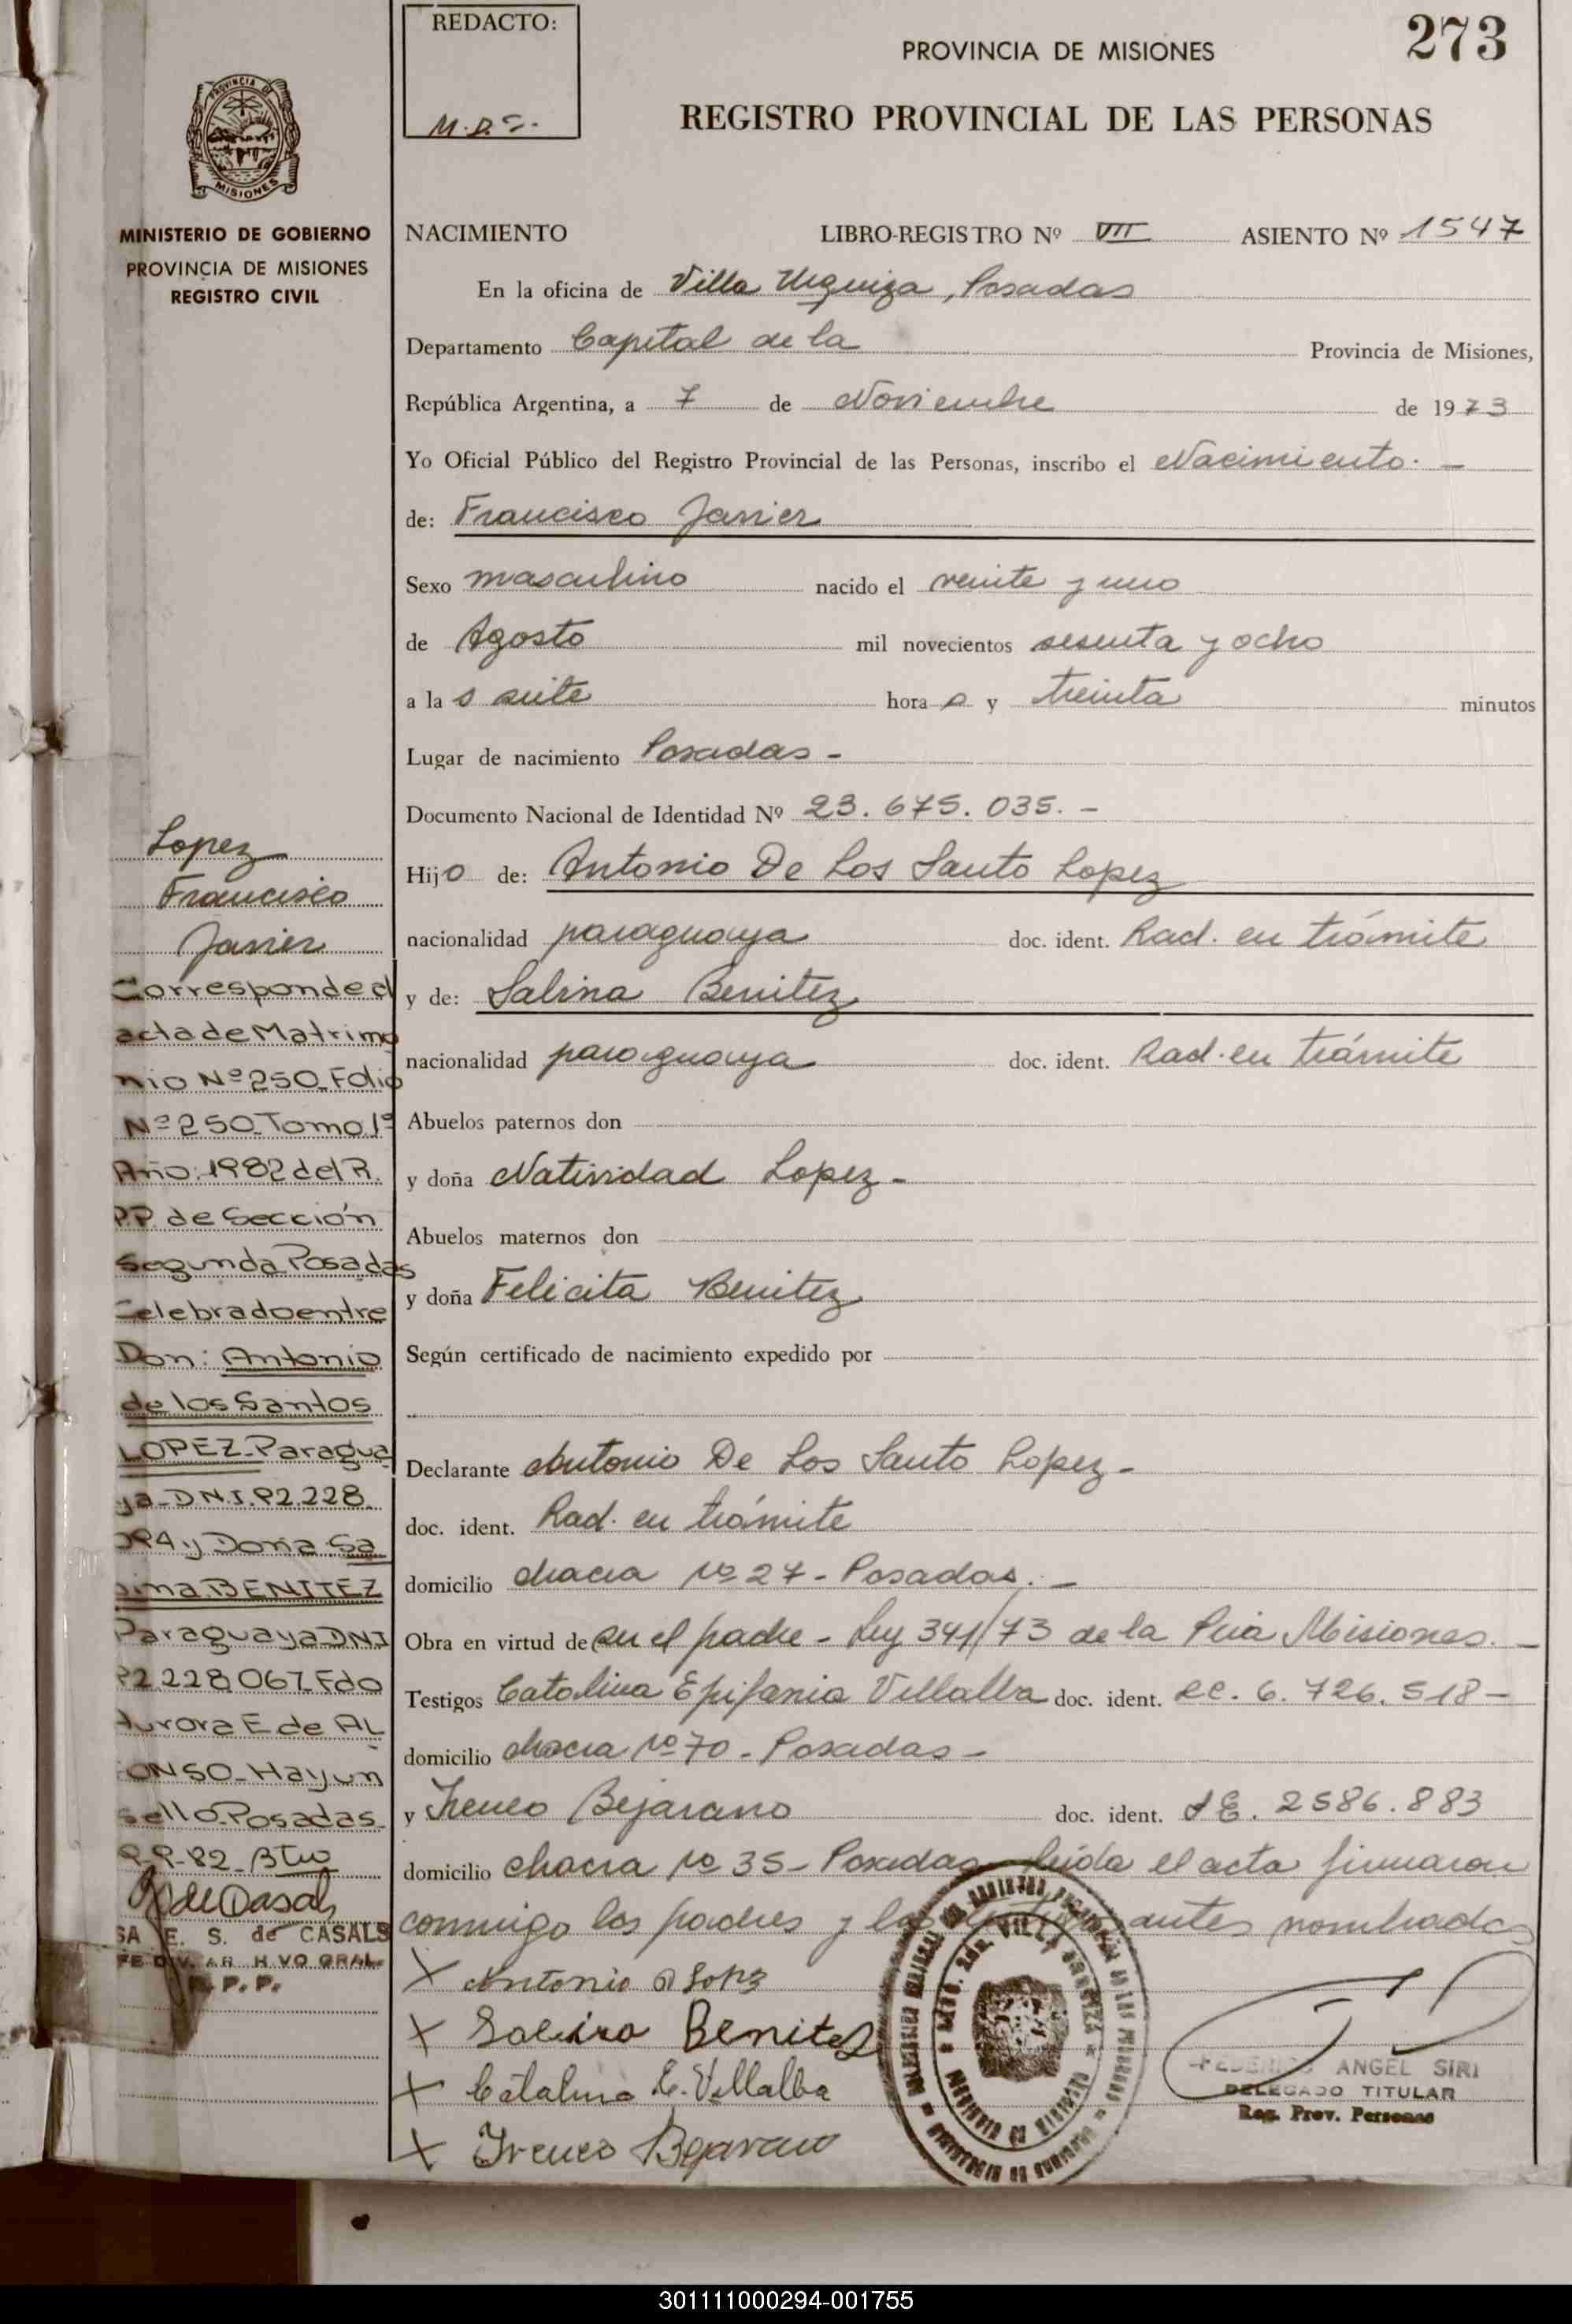 REDACTO:
M.D.S.-
273
PROVINCIA DE MISIONES
REGISTRO PROVINCIAL DE LAS PERSONAS
PROVINCIA DE
MISIONES
MINISTERIO DE GOBIERNO
PROVINCIA DE MISIONES
REGISTRO CIVIL
NACIMIENTO LIBRO-REGISTRO Nº VII ASIENTO Nº 1547
En la oficina de Villa Urquiza, Posadas
Departamento Capital de la Provincia de Misiones,
República Argentina, a 7 de Noviembre de 1973
Yo Oficial Público del Registro Provincial de las Personas, inscribo el Nacimiento. -
de: Francisco Javier
Sexo masculino nacido el veinte y uno
de Agosto mil novecientos sesenta y ocho
a las siete horas y treinta minutos
Lugar de nacimiento Posadas -
Documento Nacional de Identidad Nº 23.675.035. -
Hijo de: Antonio De Los Santo Lopez
nacionalidad paraguaya doc. ident. Rad. en trámite
y de: Salina Benitez
nacionalidad paraguaya doc. ident. Rad. en trámite
Abuelos paternos don
y doña Natividad Lopez -
Abuelos maternos don
y doña Felicita Benitez
Según certificado de nacimiento expedido por
Declarante Antonio De Los Santo Lopez -
doc. ident. Rad. en trámite
domicilio chacra Nº 27 - Posadas. -
Obra en virtud de ser el padre - Ley 341/73 de la Pcia Misiones. -
Testigos Catalina Epifania Villalba doc. ident. 6.726.518 -
domicilio chacra Nº 70 - Posadas -
y Ireneo Bejarano doc. ident. 2586.883
domicilio chacra Nº 35 - Posadas leída el acta firmaron
conmigo los padres y los antes nombrados
X Antonio Lopz
X Benitez
X Catalina E. Villalba
X Ireneo Bejarano
FEDERICO ANGEL SIRI
DELEGADO TITULAR
Reg. Prov. Personas
Lopez
Francisco
Javier
Corresponde al
acta de Matrimo
nio Nº 250 Folio
Nº 250 Tomo 1º
Año: 1982 del R.
P.P. de Sección
Segunda Posadas
Celebrado entre
Don: Antonio
de los Santos
LOPEZ - Paragua
ya - D.N.I. 92.228.
y Doña Sa
BENITEZ
Paraguaya DNI
92.228.067. Fdo
Aurora E de AL
FONSO - Hay un
sello - Posadas
82
de Casals
E. S. de CASALS
R.P.P.
301111000294-001755